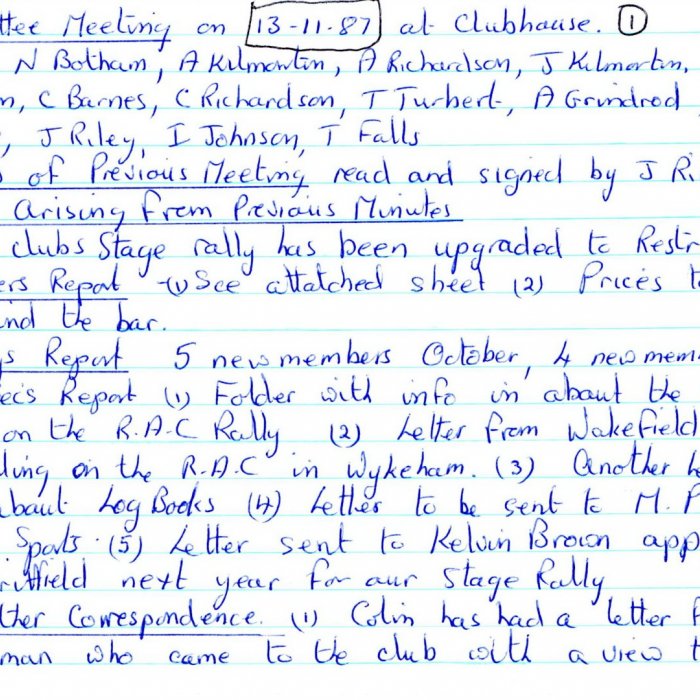 ttee Meeting on 13-11-87 at Clubhouse. 1
N Botham, A Kilmartin, A Richardson, J Kilmartin,
n, C Barnes, C Richardson, T Turbert, A Grindrod
, J Riley, I Johnson, T Falls
s of Previous Meeting read and signed by J Ri
arising from Previous Minutes
clubs Stage rally has been upgraded to Restr
ers Report (1) See attatched sheet (2) Prices t
ind the bar.
s Report 5 new members October, 4 new mem
ec's Report (1) Folder with info in about the
on the R.A.C Rally (2) Letter from Wakefield
lling on the R.A.C in Wykeham. (3) Another le
about Log Books (4) Letter to be sent to M. P
Spads. (5) Letter sent to Kelvin Brown app
field next year for our Stage Rally
ther Correspondence. (1) Colin has had a letter f
man who came to the club with a view t